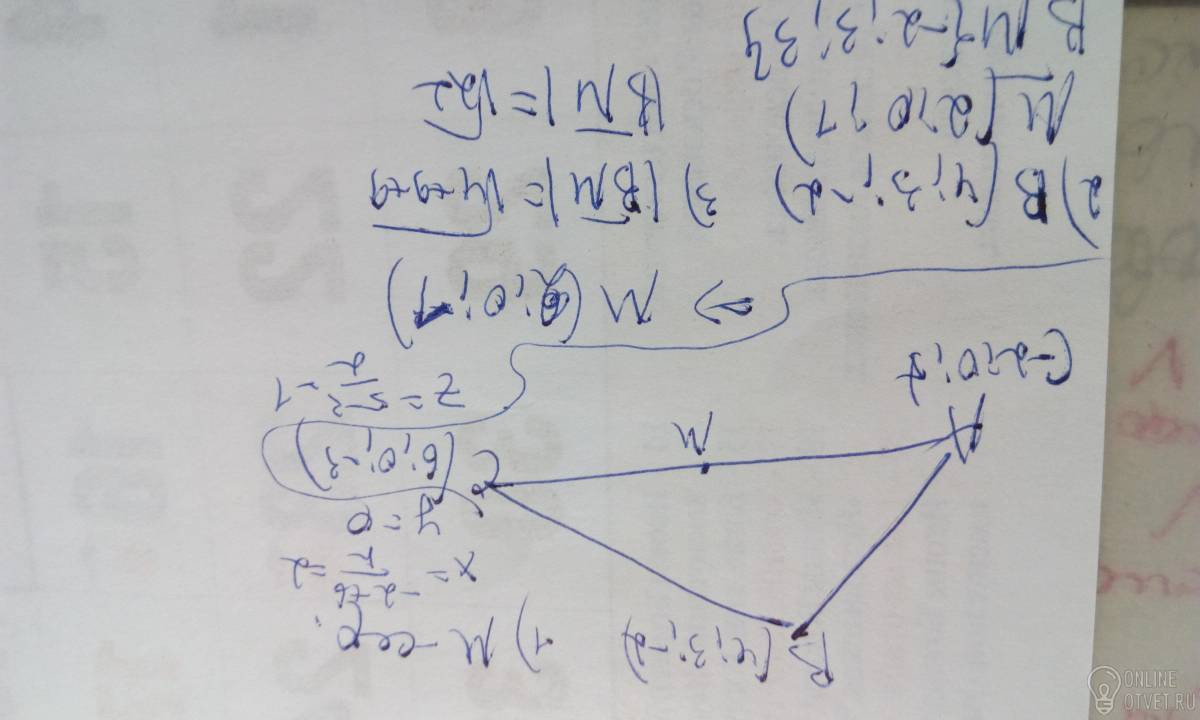 B (4; 3; -2)
1) M - сер.
x = \frac{-2+6}{2} = 2
y = 0
C (6; 0; -3)
z = \frac{5-3}{2} = 1
M
A
(-2; 0;
⇒ M (2; 0; 1)
2) B (4; 3; -2)
M (2; 0; 1)
BM {-2; 3; 3}
3) |BM| = √4+9+9
|BM| = √22
ONLINE
OTVET.RU